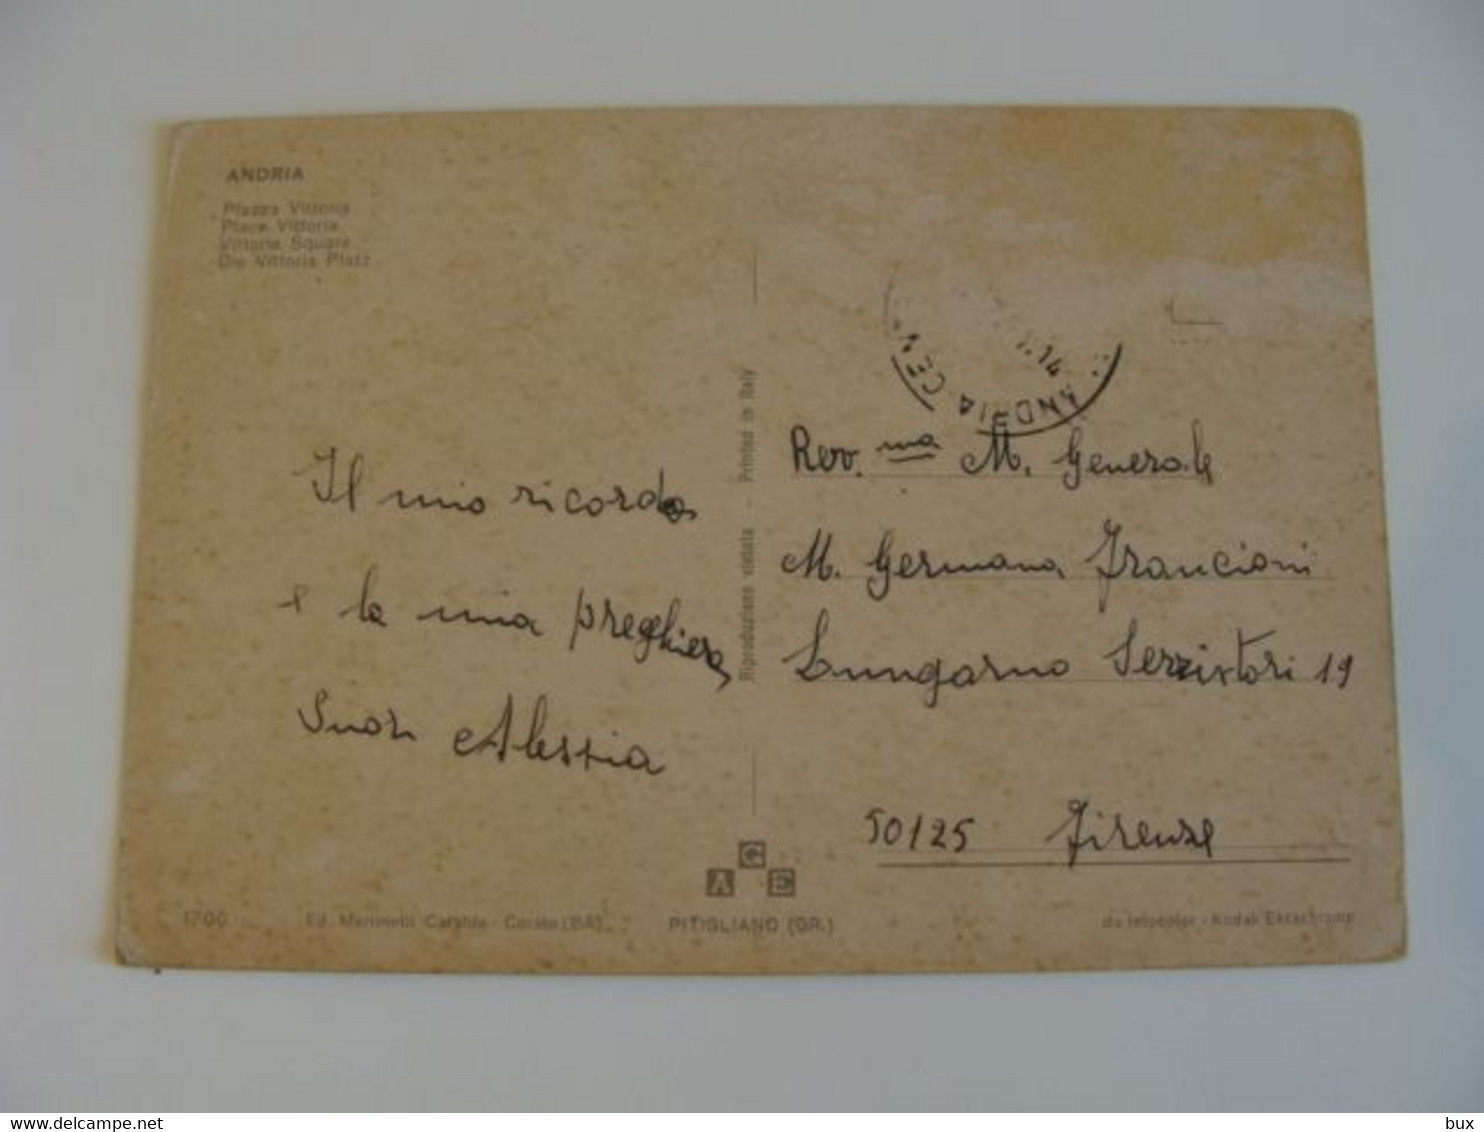 ANDRIA
Piazza Vittoria
Place Vittoria
Vittoria Square
Die Vittoria Platz
Il mio ricordo
e la mia preghiera,
Suor Alessia
Riproduzione vietata - Printed in Italy
ANDRIA CEN
.14
Rev.ma M. Generale
M. Germana Francioni
Lungarno Serzistori 19
50125 Firenze
1700
Ed. Martinelli Caratù - Corato (BA)
A G E
PITIGLIANO (GR.)
da fotocolor - Kodak Ektachrome
https://www.delcampe.net
bux